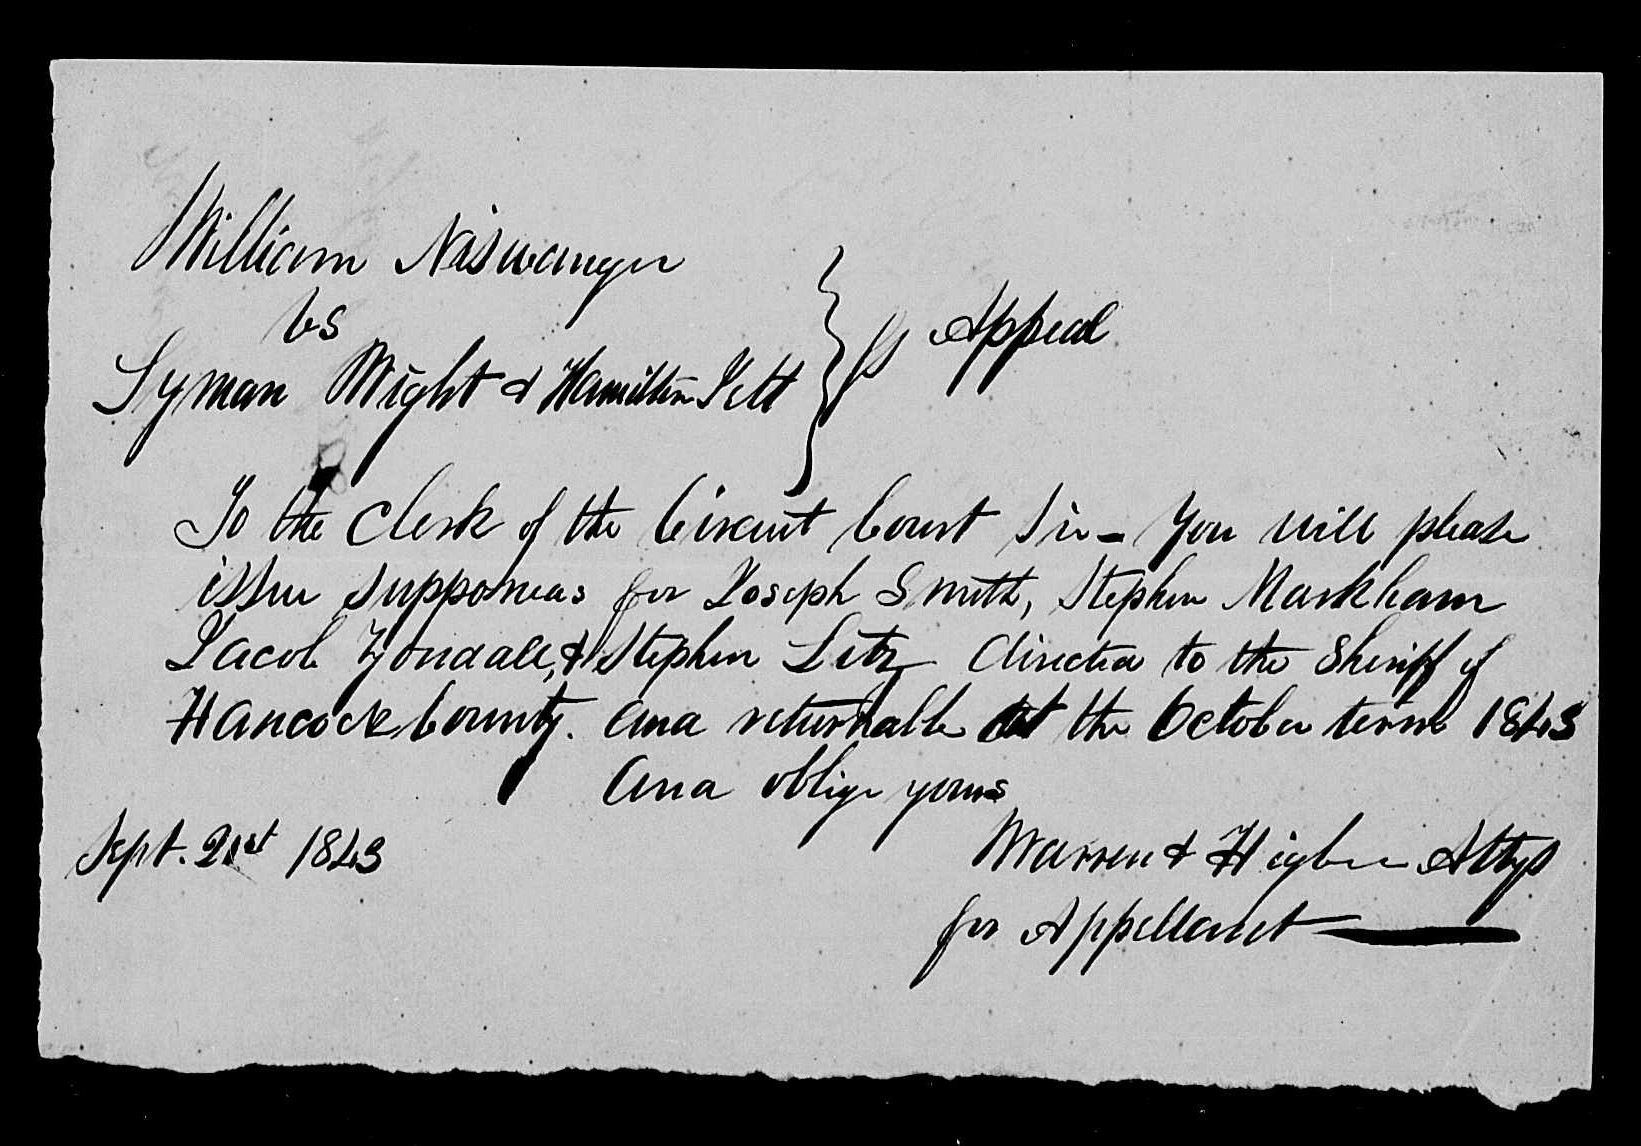 William Niswanger
vs
Lyman Wight & Hamilton Jett } Appeal
To the Clerk of the Circuit Court Sir – You will please
issue supponeas for Joseph Smith, Stephen Markham
Jacob & Stephen Litz directed to the Sheriff of
Hancock County. and returnable at the October term 1843
and oblige yours
Sept. 21st 1843
Warren & Higbee Attys
for Appellant